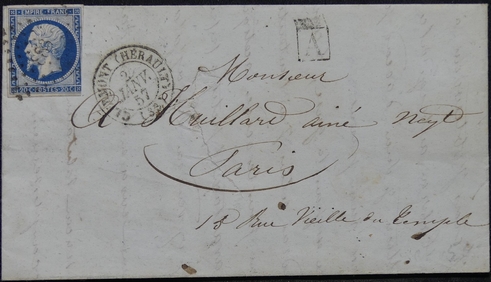 EMPIRE FRANC.
20 C. POSTES 20 C.
CLERMONT (HÉRAULT)
2
JANV.
57
(33)
A
Monsieur
A Huillard ainé Negt
Paris
18 Rue Vieille du Temple